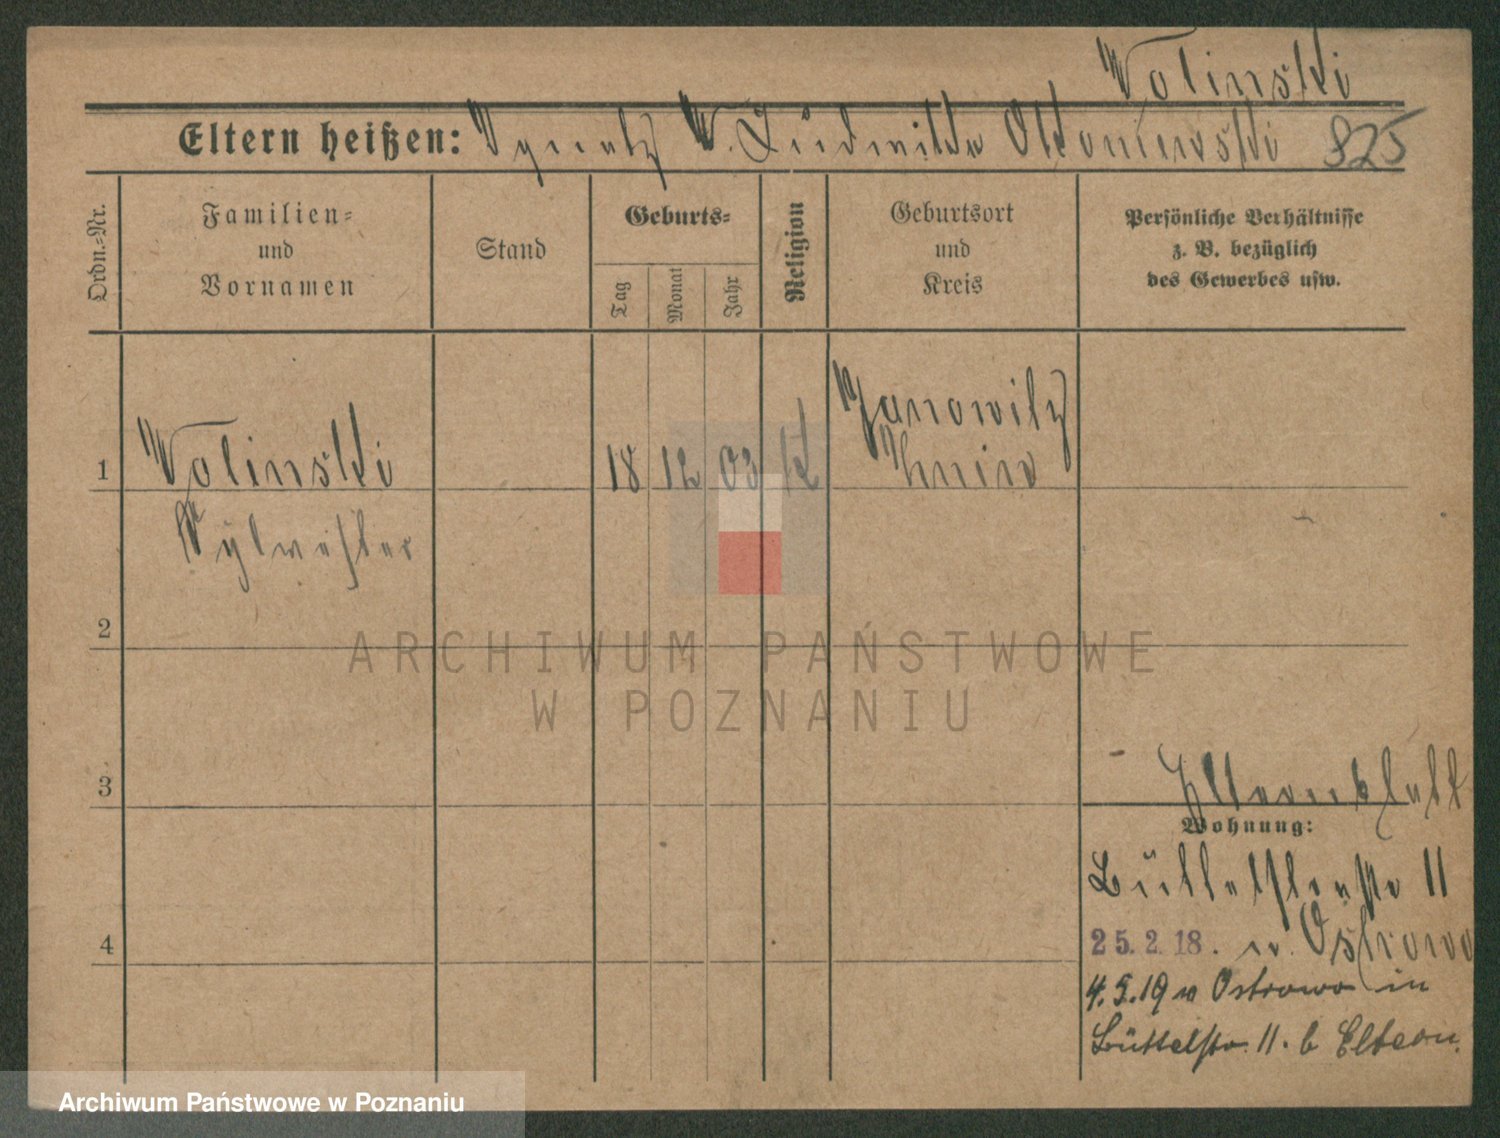 Wolinski
Eltern heißen: Ignatz W. Ludmilla 825
Ordn.=Nr.
Familien=
und
Vornamen
Stand
Geburts=
Tag
Monat
Jahr
Religion
Geburtsort
und
Kreis
Persönliche Verhältnisse
z. B. bezüglich
des Gewerbes usw.
Janowitz
1 Wolinski 18 12 03 K Znin
Sylwester
2
ARCHIWUM PAŃSTWOWE
W POZNANIU
3
Wohnung:
Büttelstraße 11
4
25.2.18. n. Ostrowo
4.5.19 v Ostrowo in
Büttelstr. 11. b Eltern.
Archiwum Państwowe w Poznaniu